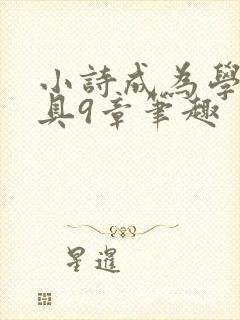 小詩成為學
具9章筆趣
星暹